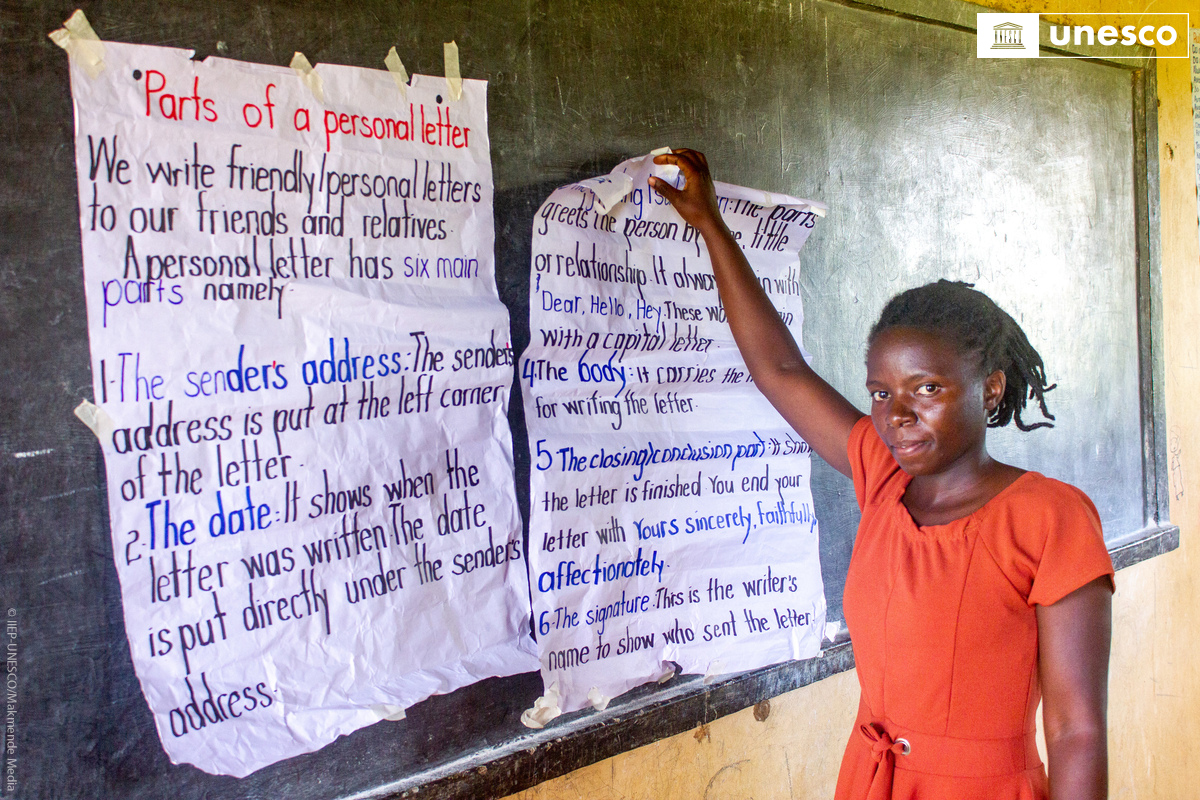 unesco
Parts of a personal letter
We write friendly/personal letters
to our friends and relatives.
A personal letter has six main
parts namely:
1. The senders address: The sender's
address is put at the left corner
of the letter.
2. The date: It shows when the
letter was written. The date
is put directly under the sender's
address.
The parts
greets the person by title
or relationship. It with
Dear, Hello, Hey. These
with a capital letter.
4. The body: it carries the
for writing the letter.
5. The closing/conclusion part: It
the letter is finished You end your
letter with Yours sincerely, Faithfully,
affectionately.
6. The signature: This is the writer's
name to show who sent the letter.
© IIEP-UNESCO/Makmende Media